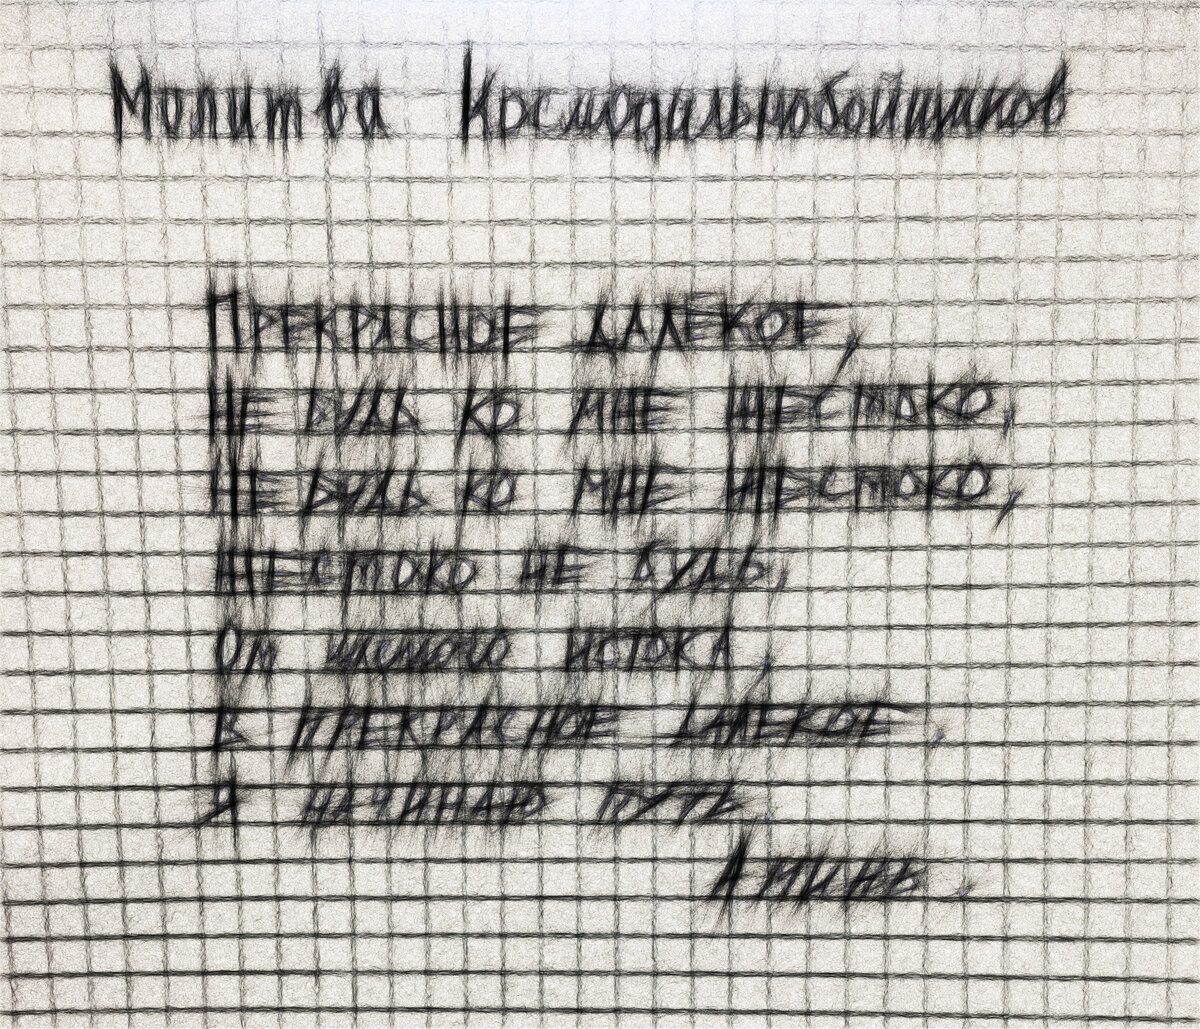 Молитва Космодальнобойщиков
ПРЕКРАСНОЕ ДАЛЕКО́Е,
НЕ БУДЬ КО МНЕ ЖЕСТОКО,
НЕ БУДЬ КО МНЕ ЖЕСТОКО,
ЖЕСТОКО НЕ БУДЬ,
От чистого ИСТОКА,
В ПРЕКРАСНОЕ ДАЛЕКОЕ,
Я НАЧИНАЮ ПУТЬ.
Аминь.